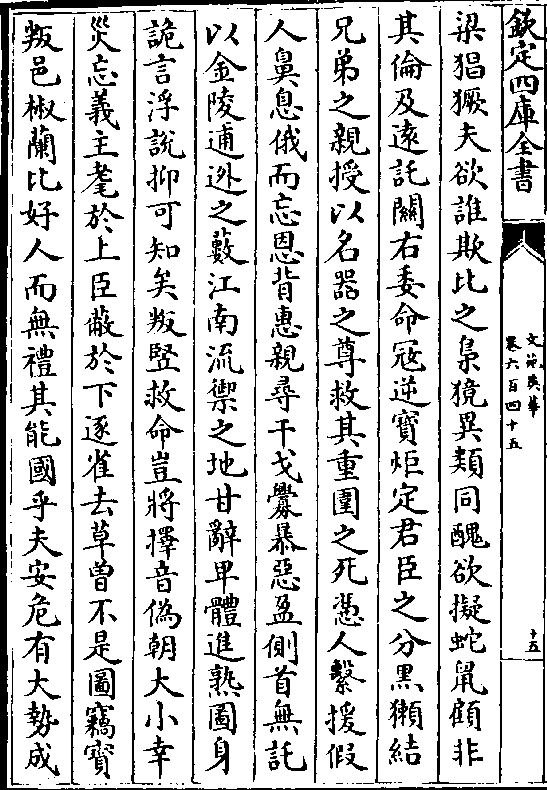 欽定四庫全書
文苑英華
卷六百四十五
十五
梁猖獗夫欲誰欺比之梟獍異類同醜欲擬蛇鼠顧非
其倫及遠託關右委命宼逆寶炬定君臣之分黑獺結
兄弟之親授以名器之尊救其重圍之死憑人繫援假
人鼻息俄而忘恩背惠親尋干戈釁暴惡盈側首無託
以金陵逋逃之藪江南流禦之地甘辭卑體進熟圖身
詭言浮說抑可知矣叛豎救命豈將擇音偽朝大小幸
災忘義主耄於上臣蔽於下逐雀去草曾不是圖竊寶
叛邑椒蘭比好人而無禮其能國乎夫安危有大勢成